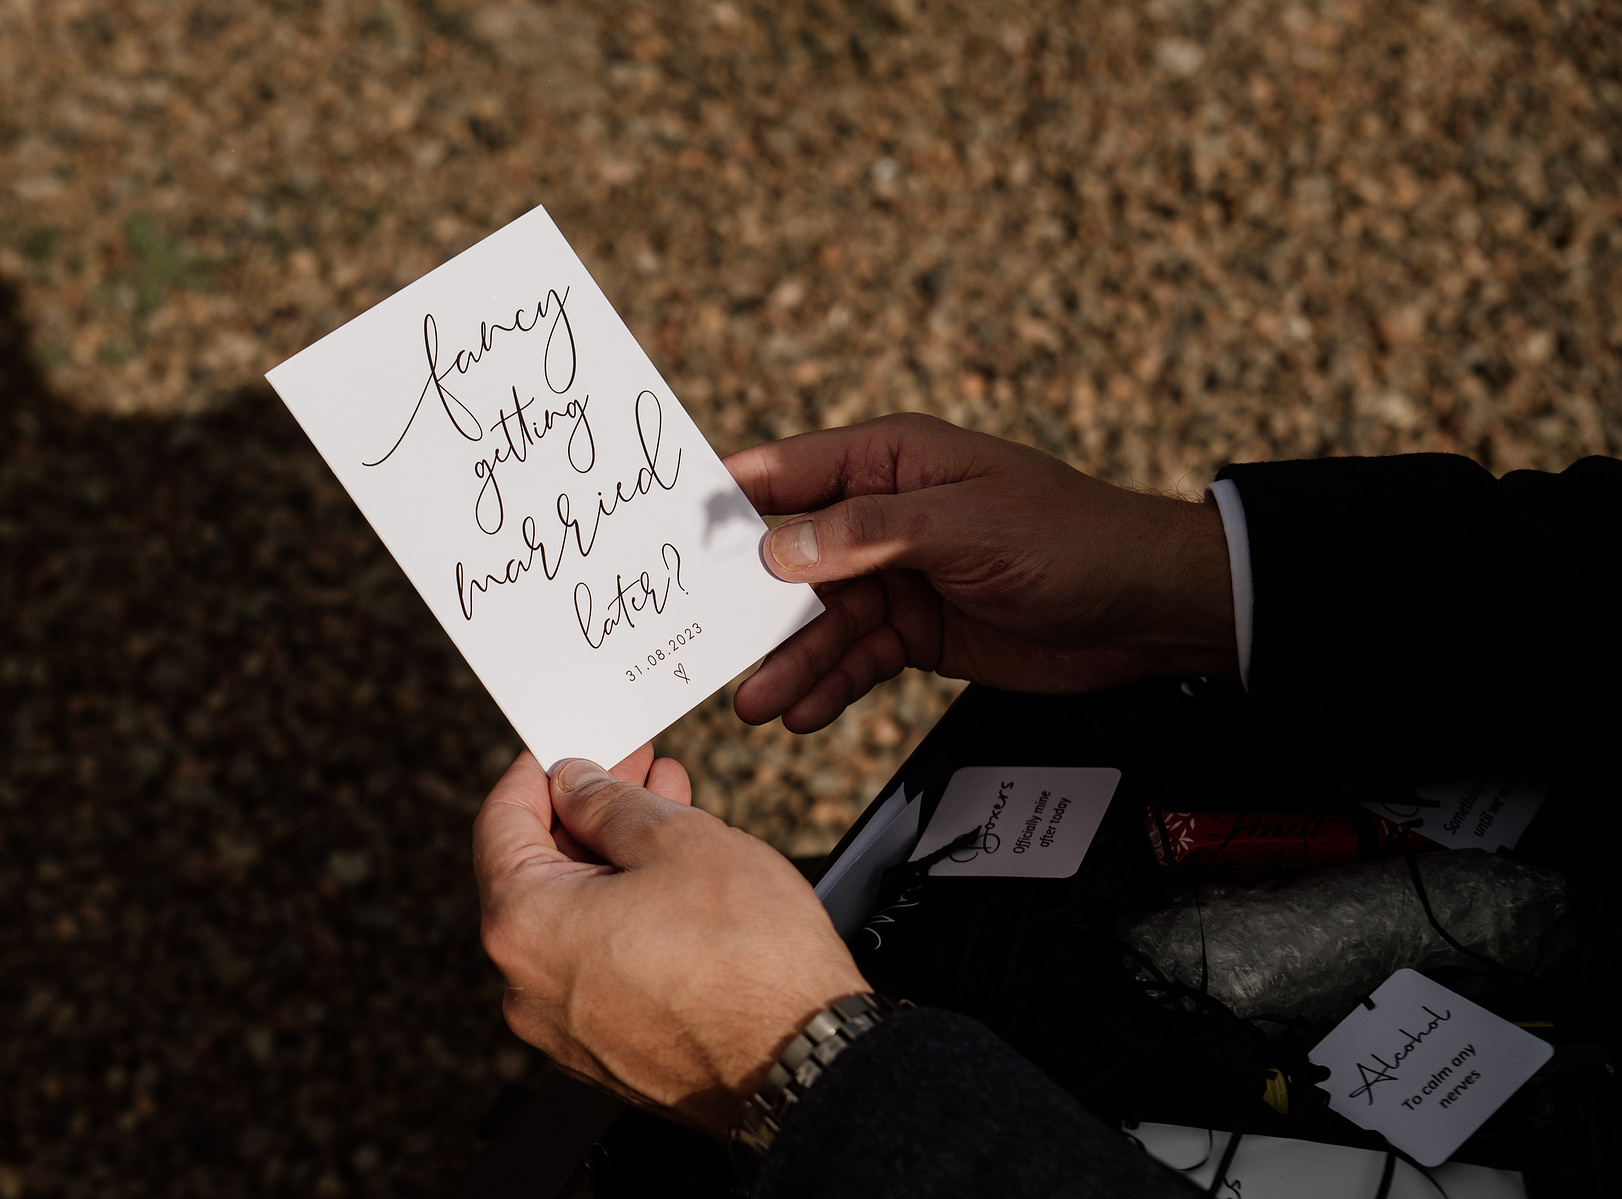 fancy
getting
married
later?
31.08.2023
Boxers
Officially mine
after today
Lindt
Something
until we
Alcohol
To calm any
nerves